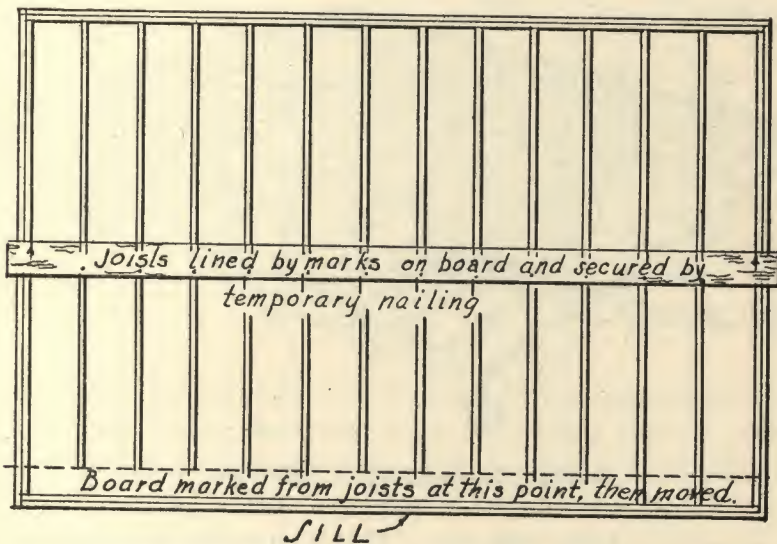 Joists lined by marks on board and secured by
temporary nailing
Board marked from joists at this point, then moved.
SILL